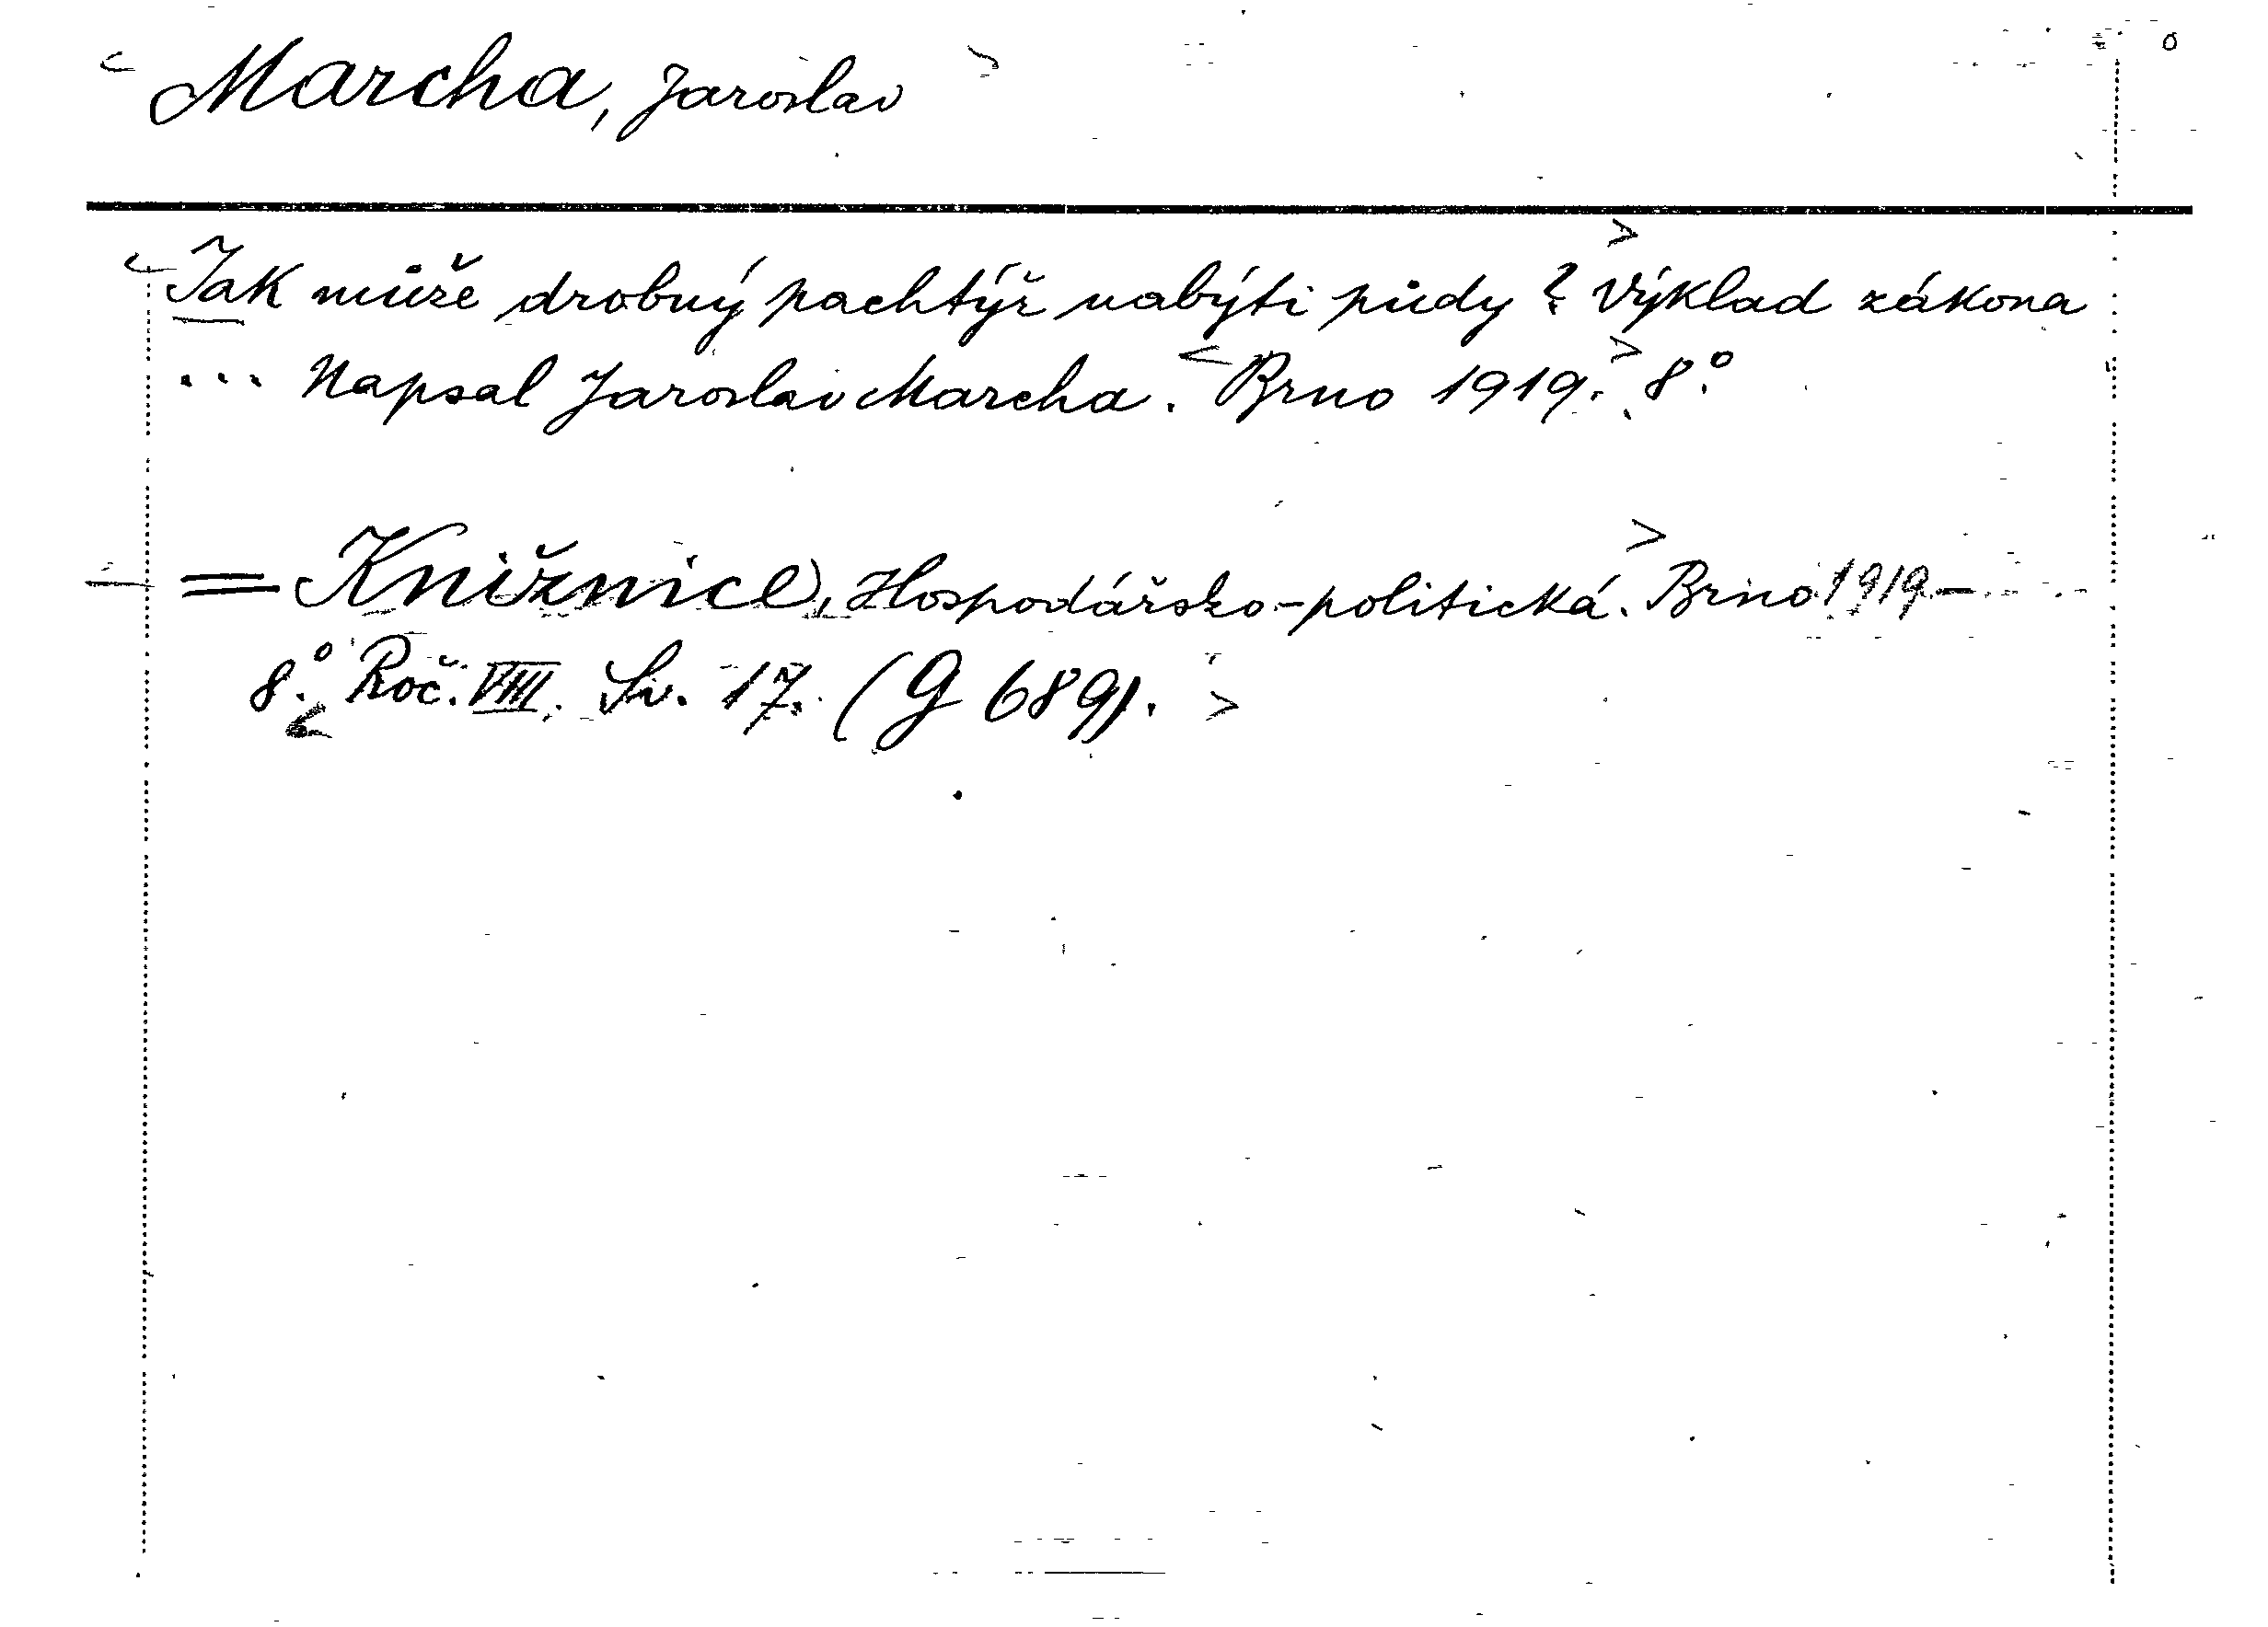 Marcha, Jaroslav
Jak může drobný pachtýř nabýti půdy? Výklad zákona
... Napsal Jaroslav Marcha. Brno 1919. 8°.
= Knižnice, Hospodářsko-politická. Brno 1919-
8°. Roč. VIII. Sv. 17. (G 689).